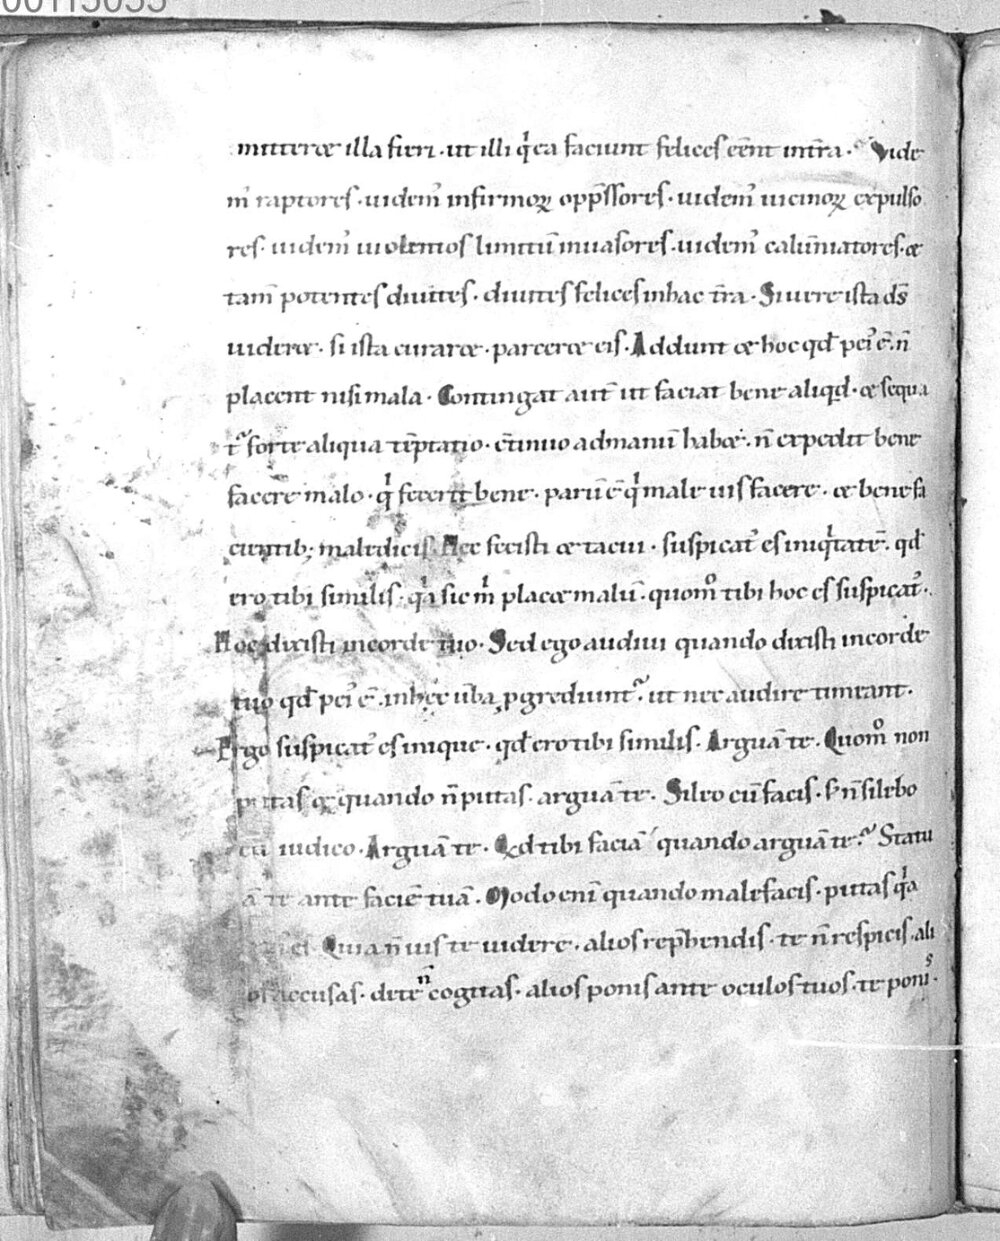 mitteret illa fieri · ut illi q̇ ea faciunt felices eēnt in tr̄a · Vide
m᷒ raptores · uidem᷒ infirmoꝝ opp̄ssores · uidem᷒ uicinoꝝ expulso
res · uidem᷒ uiolentos limitū inuasores · uidem᷒ calūniatores · &
tam̄ potentes diuites · diuites felices in hac tr̄a · Si uere ista dś
uideret · si ista curaret · parceret eis · Addunt & hoc qđ pei᷒ ē · n̄
placent nisi mala · Contingat aut̄ ut faciat bene aliqđ · & sequa
t᷑ forte aliqua tēptatio · c̄tinuo ad manū habet · n̄ expedit bene
facere malo · qͥ fecerit bene · parū ē qͥ male uis facere · & bene fa
cientib; maledicis · Hec fecisti & tacui · suspicat᷒ es iniqͥtatē · qđ
ero tibi similis · qͣ sic mͥ placet malū · quom̊ tibi hoc es suspicat᷒ ·
Hoc dixisti in corde tuo · Sed ego audiui quando dixisti in corde
tuo qđ pei᷒ ē · in hęc ūba ꝓgrediunt᷑ · ut nec audire timeant ·
Ergo suspicat᷒ es inique · qđ ero tibi similis · Arguā te · Quom̊ non
putas & quando n̄ putas · arguā te · Sileo cū facis · s; n̄ silebo
cū iudico · Arguā te · Qđ tibi faciā quando arguā te? Statu
ā te ante faciē tuā · Modo enī quando male facis · putas qͣ
Quia n̄ uis te uidere · alios rep̄hendis · te n̄ respicis · ali
os accusas · de te n̄ cogitas · alios ponis ante oculos tuos · te ponis ·